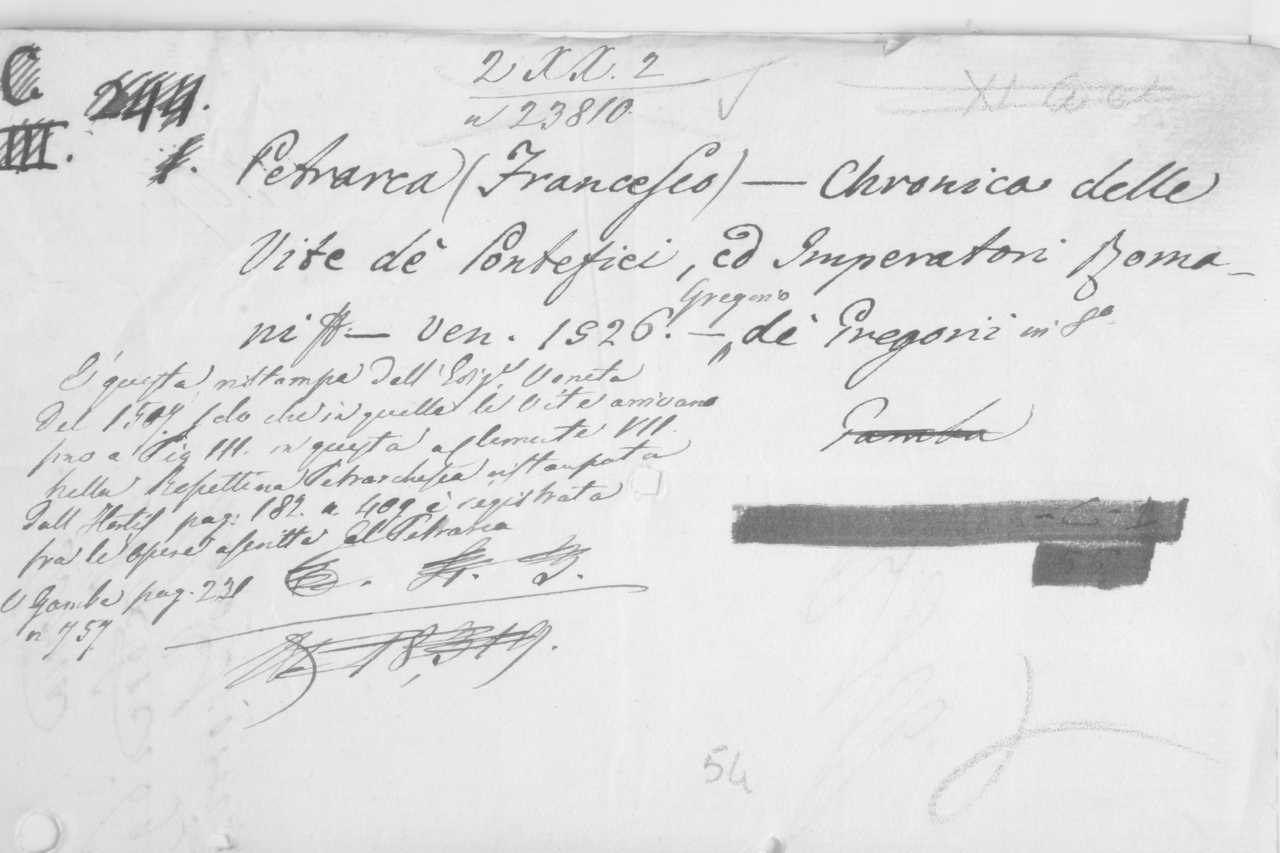 2 XX. 2
n 23810.
C 244.
III. f.
Petrarca (Francesco) — Chronica delle
Vite dè Pontefici, ed Imperatori Roma-
ni — Ven. 1526. — Gregorio dè Gregorii in 8º
È questa ristampa dall'Ediz. Veneta
del 150 che in quella le Vite arrivano
fino a Pio III. in questa a Clemente VII.
nella Petrarchesca ristampata
dall' Hortis pag: 182. n 409 è registrata
fra le opere ascritte al Petrarca
V Gamba pag. 231
n 757
Gamba
N 18,319.
54